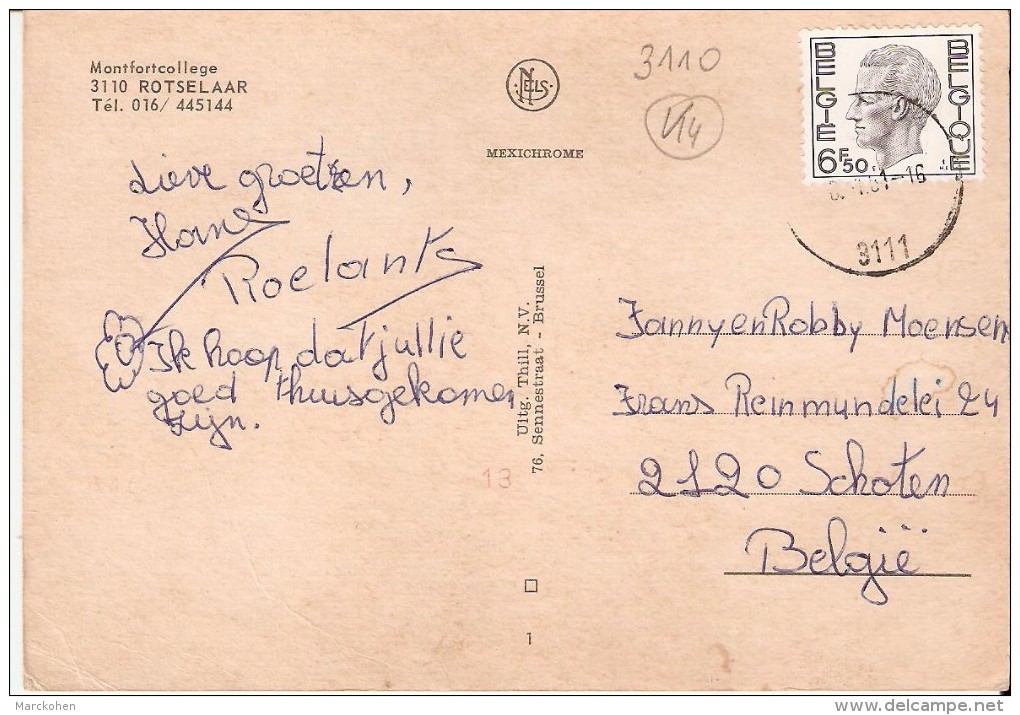 Montfortcollege
3110 ROTSELAAR
Tél. 016/ 445144
NELS
MEXICHROME
3110
V14
BELGIE
BELGIQUE
6F50
-16
3111
Lieve groeten,
Hans
Roelants
Ik hoop dat jullie
goed thuisgekomen
zijn.
Uitg. Thill, N.V.
76, Sennestraat - Brussel
13
1
Fanny en Robby Moensen
Frans Reinmundelei 24
2120 Schoten
België
Marckohen
delcampe.net